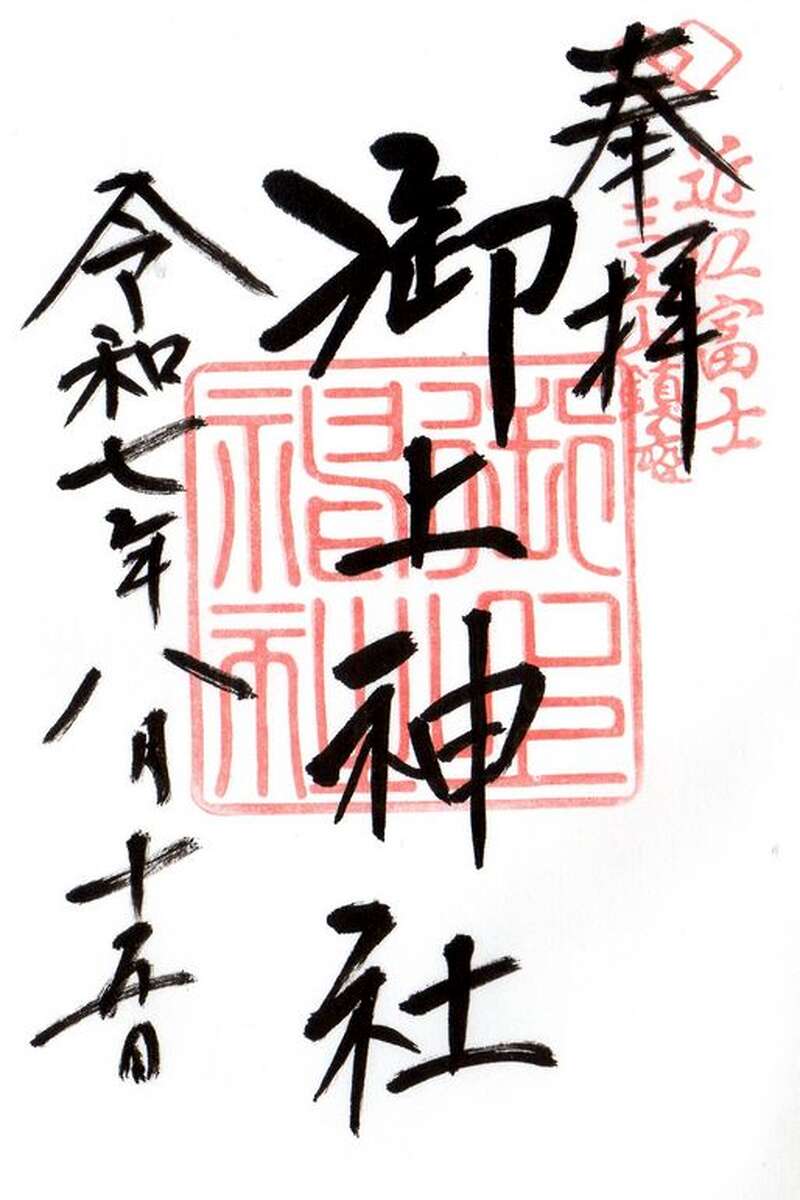 奉拝
近江富士
三上山鎮座
御上神社
御上神社
令和七年八月十五日